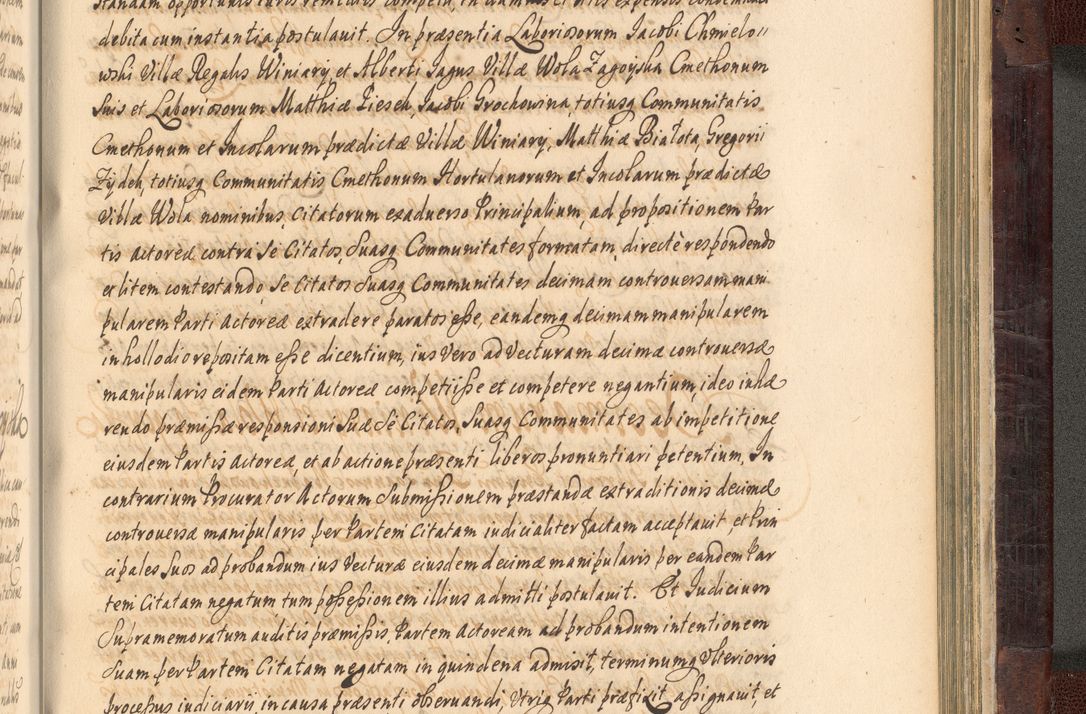 standam opportunis iuris remediis compelli, in damnis et litis expensis condemnari
debita cum instantia postulauit. In præsentia Laboriosorum Jacobi Chmielo"
wski Villæ Regalis Winiary, et Alberti Jagus Villæ Wola Zagoyska Cmethonum
suis et Laboriosorum Matthiæ Ziesek, Jacobi Grochowina, totiusq Communitatis
Cmethonum et Incolarum prædictæ Villæ Winiary, Matthiæ Białota, Gregorii
Zydek, totiusq Communitatis Cmethonum Hortulanorum et Incolarum prædictæ
Villæ Wola nominibus, Citatorum exaduerso Principalium, ad propositionem Par
tis Actoreæ contra Se Citatos, Suasq Communitates formatam, directè respondendo
et litem contestando, Se Citatos Suasq Communitates decimam controuersam mani
pularem Parti Actoreæ extradere paratos esse, eandemq decimam manipularem
in hollodio repositam esse dicentium, ius Vero ad Vecturam decimæ controuersæ
manipularis eidem Parti Actoreæ competiisse et competere negantium, ideo inhæ
rendo præmissæ responsioni Suæ Se Citatos, Suasq Communitates ab impetitione
eiusdem Partis Actoreæ, et ab actione præsenti liberos pronuntiari petentium, In
contrarium Procurator Actorum Submissionem præstandæ extraditionis decimæ
controuersæ manipularis per Partem Citatam iudicialiter factam acceptauit, et Prin
cipales Suos ad probandum ius Vecturæ eiusdem decimæ manipularis per eandem Par
tem Citatam negatum tum possessionem illius admitti postulauit. Et Iudicium
Supramemoratum auditis præmissis, Partem Actoream ad probandum intentionem
Suam per Partem Citatam negatam in quindena admisit, terminumq Vlterioris
processus iudiciarii, in causa præsenti obseruandi, Vtriq Parti præfixit, assignauit, et